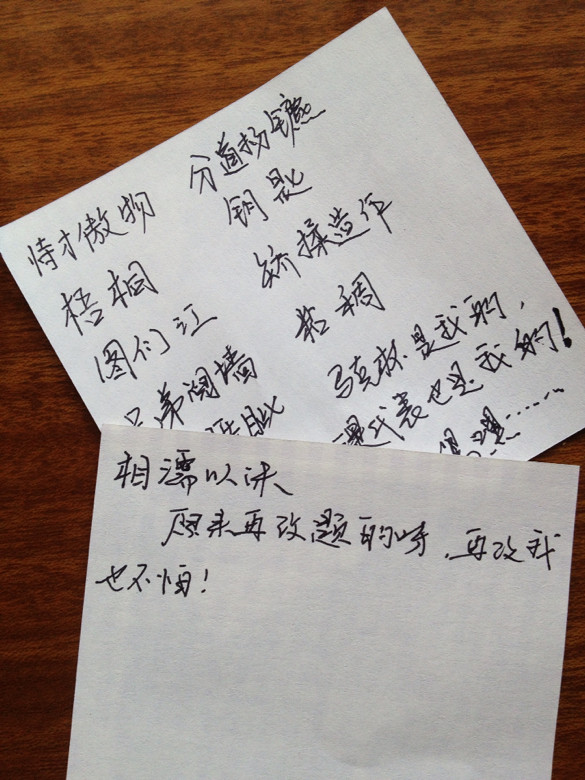 恃才傲物
分道扬镳
梧桐
钥匙
图们江
矫揉造作
兄弟阋墙
粘稠
马克杯是我的，
课代表也是我的！
相濡以沫
原来再改题的时，再改我
也不怕！